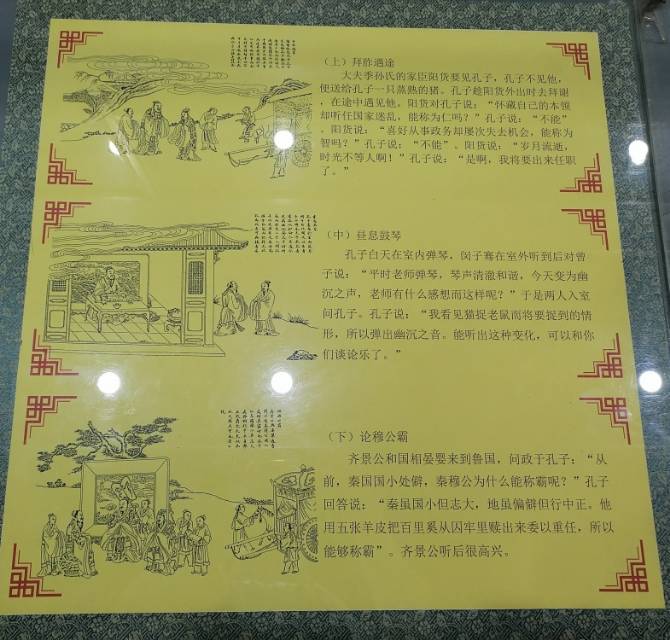 （上）拜胙遇途
大夫季孙氏的家臣阳货要见孔子，孔子不见他，
便送给孔子一只蒸熟的猪。孔子趁阳货外出时去拜谢
，在途中遇见他，阳货对孔子说：“怀藏自己的本领
却听任国家迷乱，能称为仁吗？”孔子说：“不能”
。阳货说：“喜好从事政务却屡次失去机会，能称为
智吗？”孔子说：“不能”。阳货说：“岁月流逝，
时光不等人啊！”孔子说：“是啊，我将要出来任职
了。”
（中）昼息鼓琴
孔子白天在室内弹琴，闵子骞在室外听到后对曾
子说：“平时老师弹琴，琴声清澈和谐，今天变为幽
沉之声，老师有什么感想而这样呢？”于是两人入室
问孔子。孔子说：“我看见猫捉老鼠而将要捉到的情
形，所以弹出幽沉之音。能听出这种变化，可以和你
们谈论乐了。”
（下）论穆公霸
齐景公和国相晏婴来到鲁国，问政于孔子：“从
前，秦国国小处僻，秦穆公为什么能称霸呢？”孔子
回答说：“秦虽国小但志大，地虽偏僻但行中正。他
用五张羊皮把百里奚从囚牢里赎出来委以重任，所以
能够称霸”。齐景公听后很高兴。